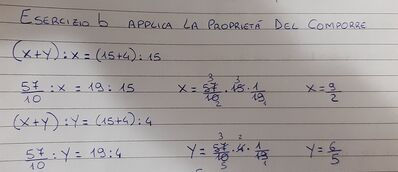 ESERCIZIO b APPLICA LA PROPRIETÁ DEL COMPORRE
(X+Y):X = (15+4):15
57/10 : X = 19 : 15 X = 57/10 · 15 · 1/19 3 2 3 1 X = 9/2
(X+Y):Y = (15+4):4
57/10 : Y = 19:4 Y = 57/10 · 4 · 1/19 3 2 5 1 Y = 6/5